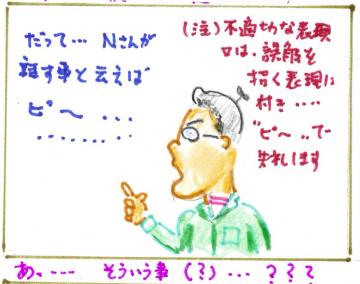 だって… Nさんが
話す事と云えば
ピ〜 ...
........
(注) 不適切な表現
又は、誤解を
招く表現に
付き ‥‥
"ピ〜"で
失礼します
あっ…… そういう事 (?) … ? ? ?